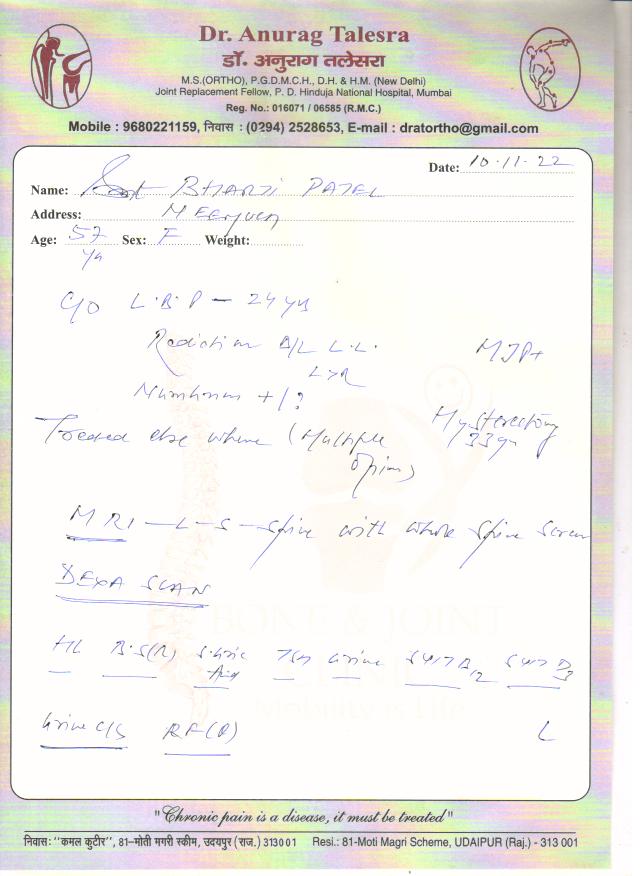 Dr. Anurag Talesra
डॉ. अनुराग तलेसरा
M.S.(ORTHO), P.G.D.M.C.H., D.H. & H.M. (New Delhi)
Joint Replacement Fellow, P. D. Hinduja National Hospital, Mumbai
Reg. No.: 016071 / 06585 (R.M.C.)
Mobile : 9680221159, निवास : (0294) 2528653, E-mail : dratortho@gmail.com
Date: 10.11.22
Name: BHARTI PATEL
Address:
Age: 57 yn Sex: F Weight:
C/O L.B.P - 24 yrs
Radiation B/L L.L.
L>R
Numbness +/?
Treated else where (Multiple
opinions)
MRI - L-S-Spine with whole Spine Screen
DEXA SCAN
B.S(R) S.Uric Acid TSH Urine B12 D3
Urine C/S RF(Q)
L
BONE & JOINT
CLINIC
Mobility is Life
"Chronic pain is a disease, it must be treated"
निवास: "कमल कुटीर", 81-मोती मगरी स्कीम, उदयपुर (राज.) 313001 Resi.: 81-Moti Magri Scheme, UDAIPUR (Raj.) - 313 001